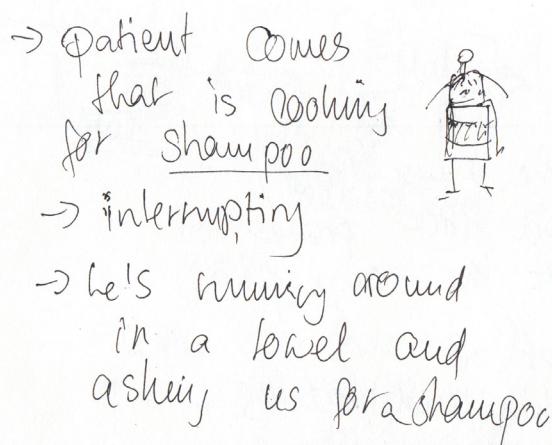 → patient comes
that is looking
for shampoo
→ interrupting
→ he's running around
in a towel and
asking us for a shampoo